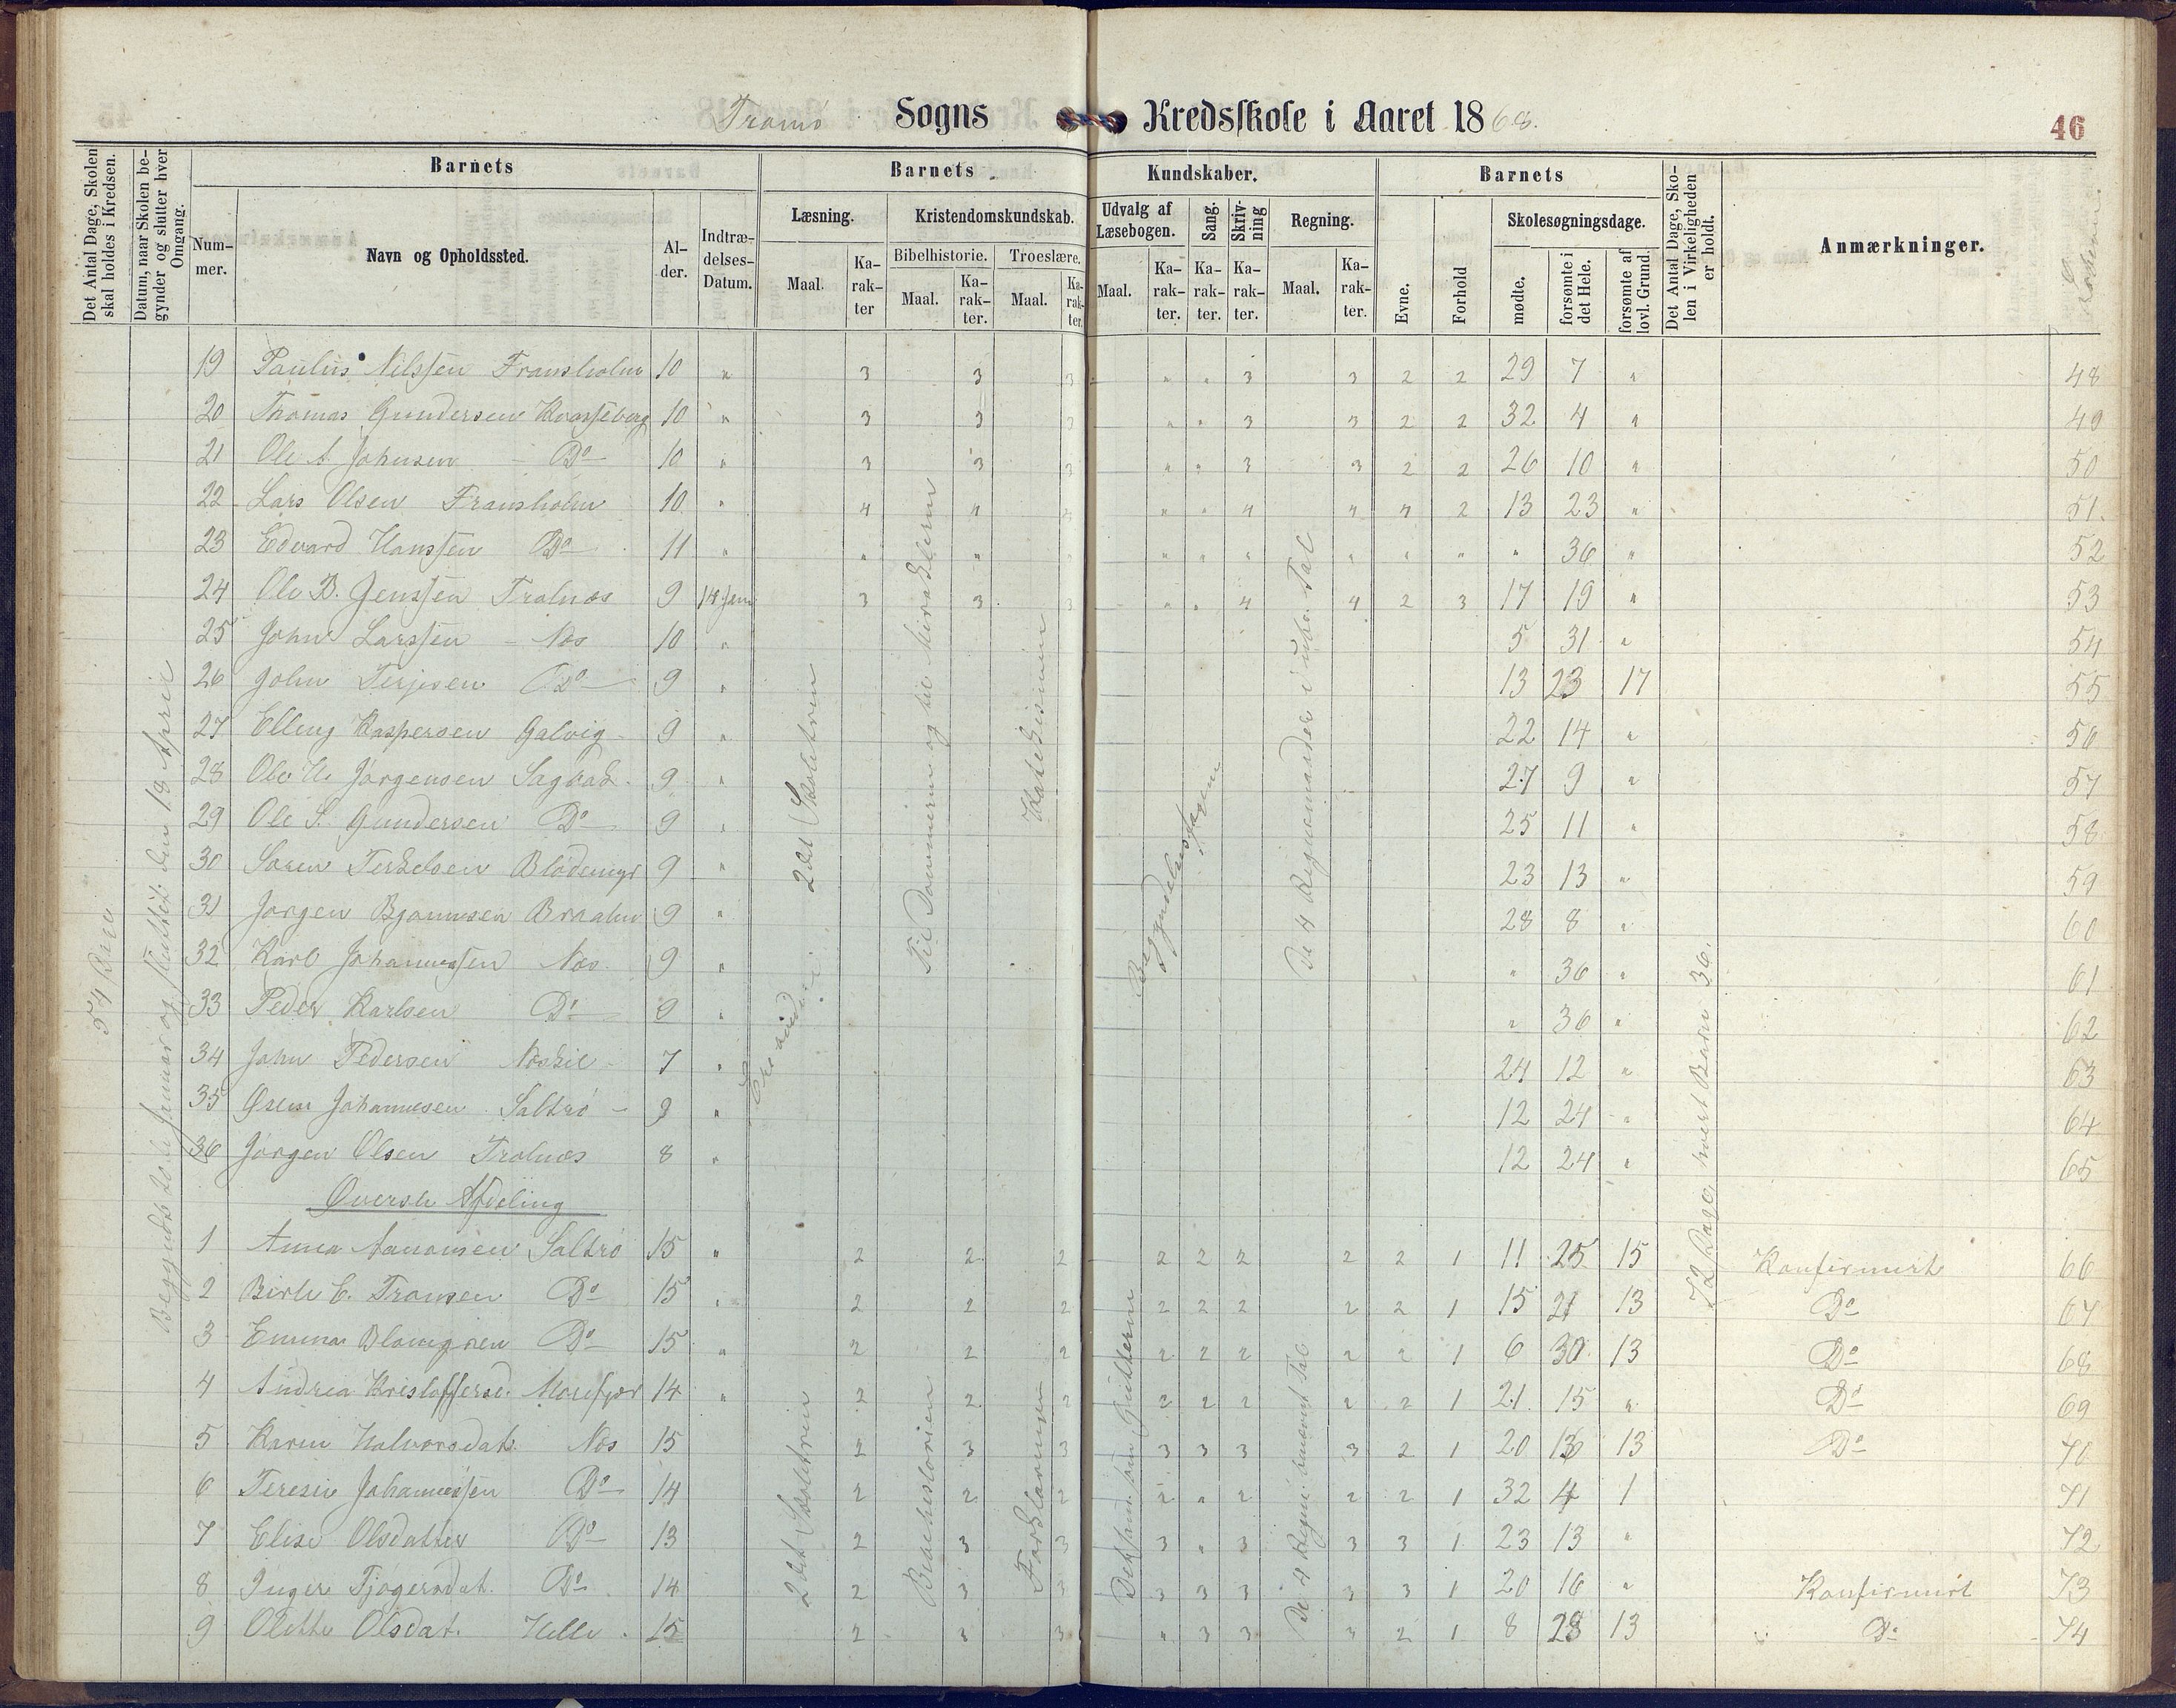 Tromø Sogns Kredsskole i Aaret 1868.
46
Det Antal Dage, Skolen skal holdes i Kredsen.
Datum, naar Skolen begynder og slutter hver Omgang.
Barnets
Nummer.
Navn og Opholdssted.
Alder.
Indtrædelses-Datum.
Barnets Kundskaber.
Læsning.
Maal.
Karakter
Kristendomskundskab.
Bibelhistorie.
Maal.
Karakter.
Troeslære.
Maal.
Karakter.
Udvalg af Læsebogen.
Maal.
Karakter.
Sang.
Karakter.
Skrivning
Karakter.
Regning.
Maal.
Karakter.
Barnets
Evne.
Forhold
Skolesøgningsdage.
mødte.
forsømte i det Hele.
forsømte af lovl. Grund.
Det Antal Dage, Skolen i Virkeligheden er holdt.
Anmærkninger.
54 Dage
18 April
2det Skoletrin
Katekismen
72 Dage, hvert Barn 36.
19 Paulus Nilssen Fransholm 10 " 3 3 3 " " 3 3 2 2 29 7 " 48
20 Thomas Gundersen Kvasseberg 10 " 3 3 3 " " 3 3 2 2 32 4 " 49
21 Ole A. Johnsen – Do 10 " 3 3 3 " " 3 3 2 2 26 10 " 50
22 Lars Olsen Fransholm 10 " 4 4 4 " " 4 4 4 2 13 23 " 51.
23 Edvard Hanssen Do 11 " " " " " " " " " " " 36 " 52
24 Ole B. Jenssen Tralnæs 9 14 Jan 3 3 3 " " 4 4 2 3 17 19 " 53
25 John Larssen – Næs 10 " 5 31 " 54
26 John Terjesen Do 9 " 13 23 17 55
27 Elling Kaspersen Galvig 9 " 22 14 " 56
28 Ole H. Jørgensen Sagbak 9 " 27 9 " 57
29 Ole S. Gundersen Do 9 " 25 11 " 58
30 Søren Terkelsen Blødemyr 9 " 23 13 " 59
31 Jørgen Bjønnesen Braaten 9 " 28 8 " 60
32 Karl Johannessen Næs 9 " " 36 " 61
33 Peder Karlsen Do 9 " " 36 " 62
34 John Pedersen Næskil 7 " 24 12 " 63
35 Johannesen Saltrø – 9 " 12 24 " 64
36 Jørgen Olsen Tralnæs 8 " 12 24 " 65
Øverste Afdeling
2det Skoletrin
Bibelhistorien
Forklaringen
1 Anna Aanonsen Saltrø 15 " 2 2 2 2 2 2 2 2 1 11 25 15 Konfirmirt 66
2 Birte C. Tronsen Do 15 " 2 2 2 2 2 2 2 2 1 15 21 13 Do 67
3 Emma Blomgren Do 15 " 2 2 2 2 2 2 2 2 1 6 30 13 Do 68
4 Andrea Kristoffersd. Morefjær 14 " 2 2 2 2 2 2 2 2 1 21 15 " Do 69
5 Karen Halvorsdat. Næs 15 2 3 3 3 3 3 3 2 1 20 16 13 Do 70
6 Teresie Johannessen Do 14 2 2 2 2 " 2 2 2 1 32 4 1 71
7 Elise Olsdatter Do 13 2 3 3 3 " 3 3 3 1 23 13 " 72
8 Inger Tjøgersdat. Do 14 2 3 3 3 3 3 3 3 1 20 16 " Konfirmirt 73
9 Olette Olsdat. Helle 15 2 3 3 " 3 3 3 2 1 8 28 13 Do 74